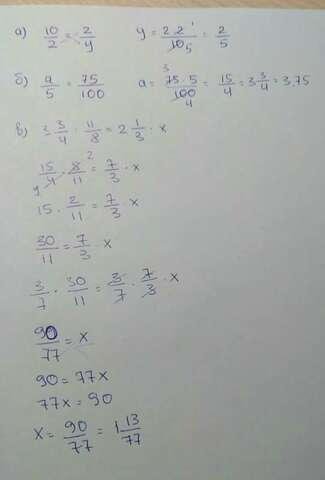 а) 10/2 = 2/y y = 2·2/10 5 = 2/5
б) a/5 = 75/100 a = 3 75·5/100 4 = 15/4 = 3 3/4 = 3,75
в) 3 3/4 : 11/8 = 2 1/3 · x
15/4 · 8 2/11 = 7/3 · x
15 · 2/11 = 7/3 · x
30/11 = 7/3 · x
3/7 · 30/11 = 3/7 · 7/3 · x
90/77 = x
90 = 77x
77x = 90
x = 90/77 = 1 13/77